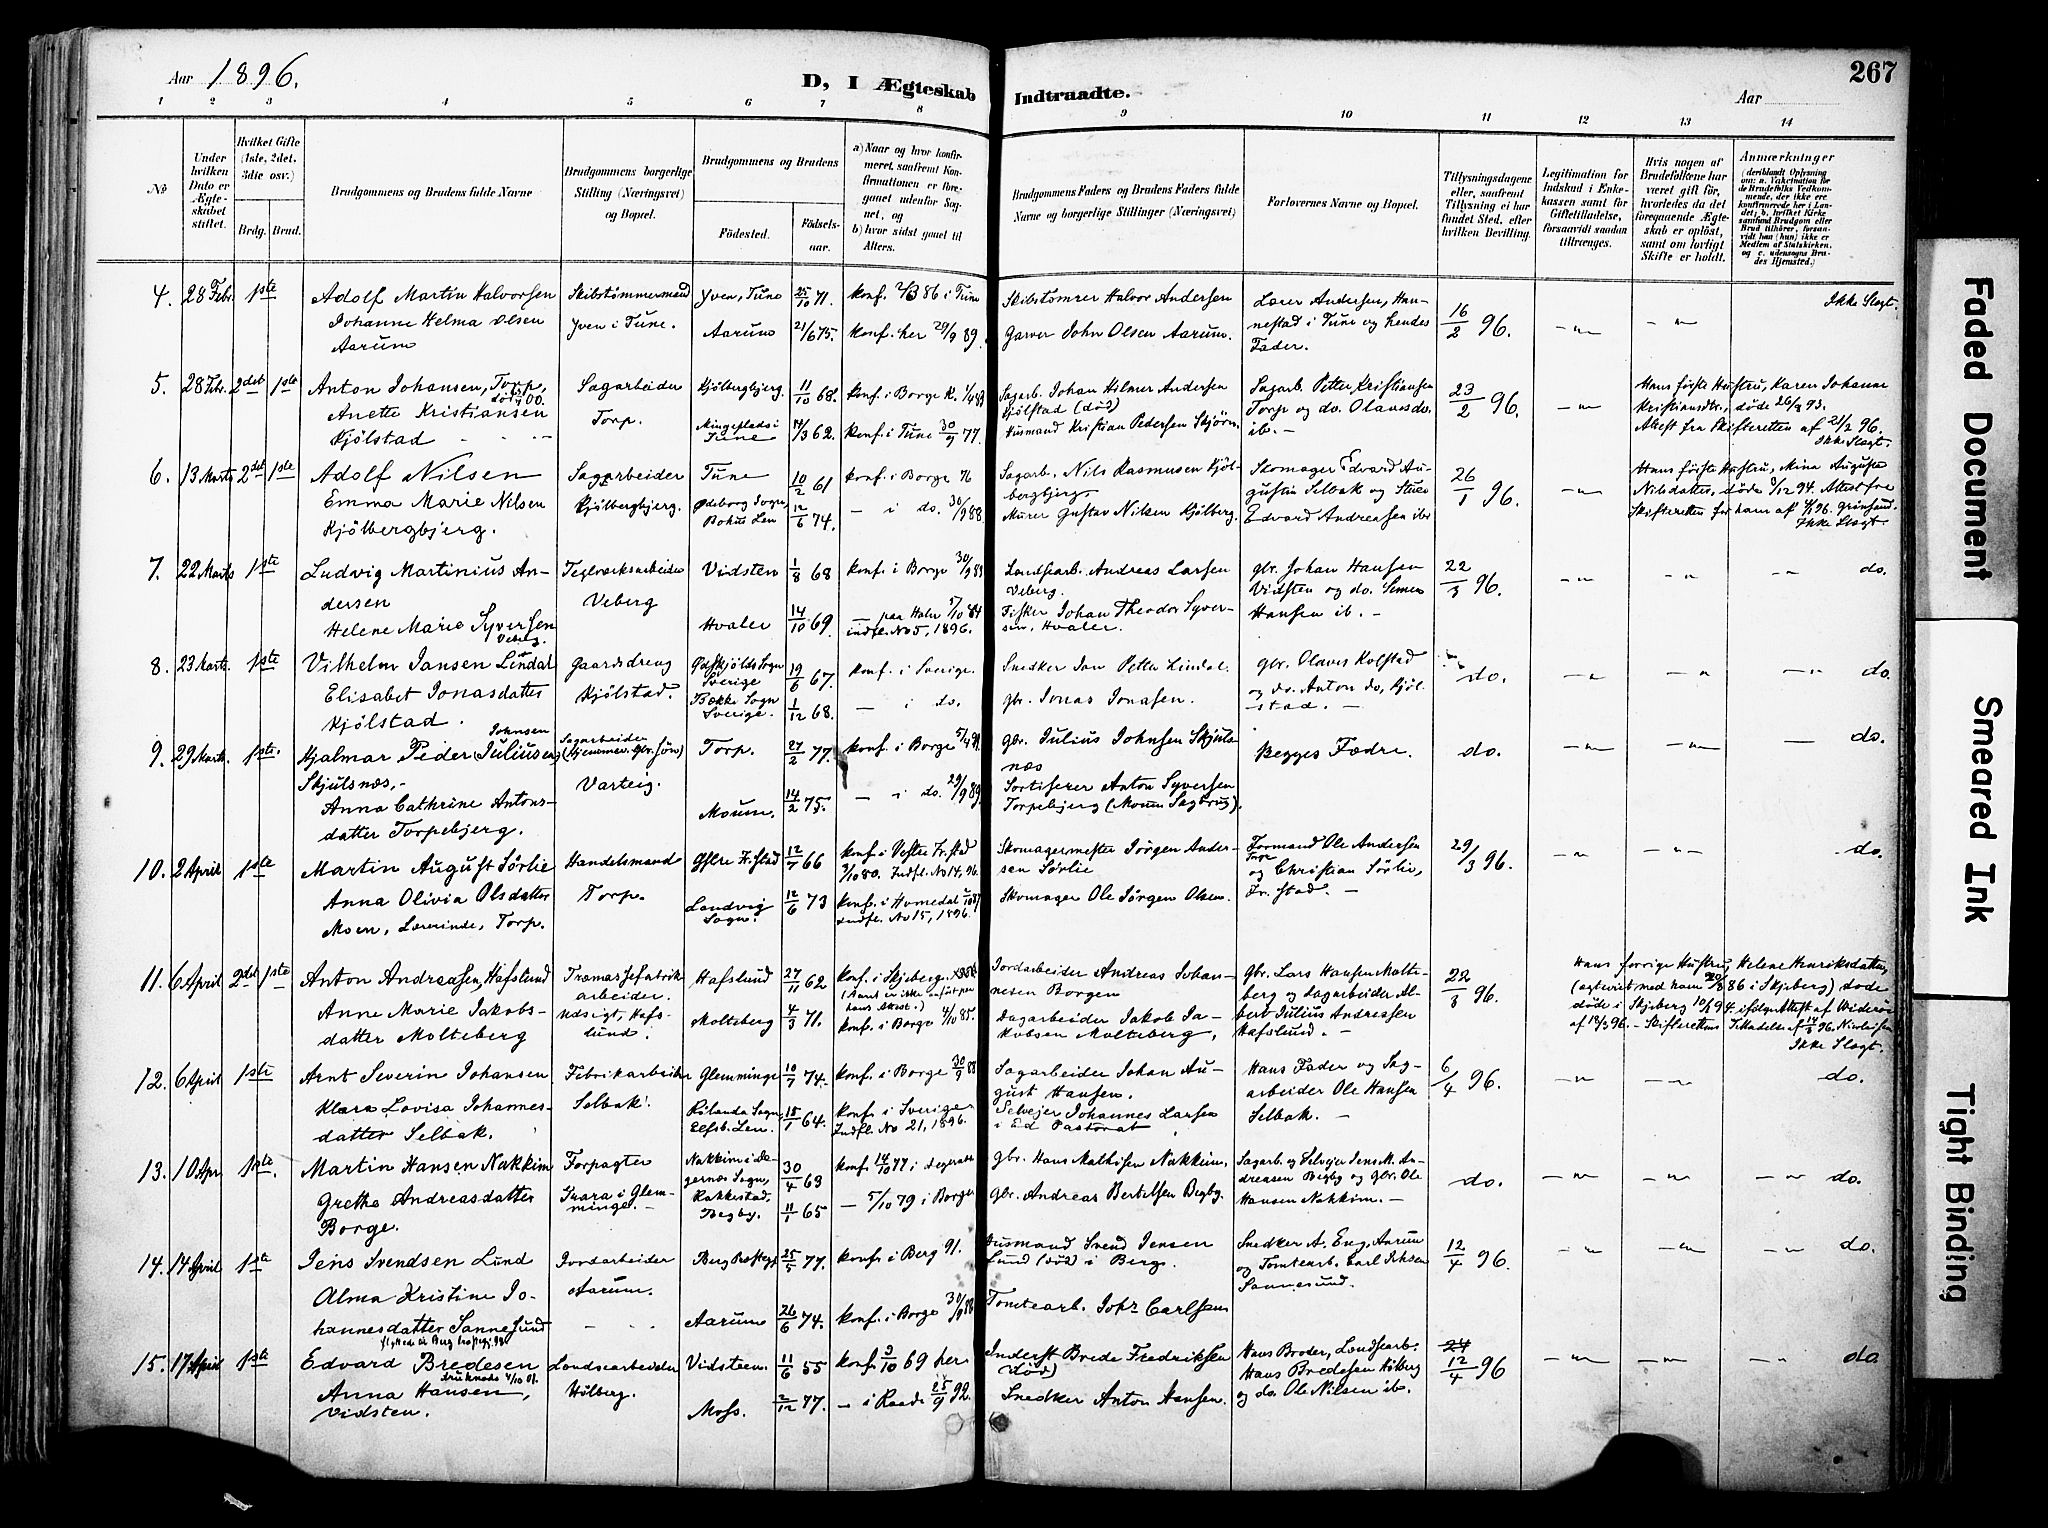 Aar 1896.
D, I Ægteskab Indtraadte.
Aar
267
1 2 3 4 5 6 7 8 9 10 11 12 13 14
No
Under hvilken Dato er Ægteskabet stiftet.
Hvilket Gifte (1ste, 2det, 3die osv.)
Brdg. Brud.
Brudgommens og Brudens fulde Navne
Brudgommens borgerlige Stilling (Næringsvei) og Bopæl.
Brudgommens og Brudens
Fødested.
Fødselsaar.
a) Naar og hvor konfirmeret, saafremt Konfirmationen er foregaaet udenfor Sognet, og
b) hvor sidst gaaet til Alters.
Brudgommens Faders og Brudens Faders fulde Navne og borgerlige Stillinger (Næringsvei)
Forlovernes Navne og Bopæl.
Tillysningsdagene eller, saafremt Tillysning ei har fundet Sted, efter hvilken Bevilling.
Legitimation for Indskud i Enkekassen samt for Giftetilladelse, forsaavidt saadan tiltrænges.
Hvis nogen af Brudefolkene har været gift før, hvorledes da det foregaaende Ægteskab er opløst, samt om lovligt Skifte er holdt.
Anmærkninger (deriblandt Oplysning om: a. Vakcination for de Brudefolks Vedkommende, der ikke ere konfirmerede her i Landet; b. hvilket Kirkesamfund Brudgom eller Brud tilhører, forsaavidt han (hun) ikke er Medlem af Statskirken, og c. udensogns Brudes Hjemsted.)
4. 28 Febr. 1ste
Adolf Martin Halvorsen
Johanne Helma Olsen
Aarum
Skibstømmermand
Yven i Tune.
Yven, Tune 25/10 71.
Aarum 21/6 75.
konf. 2/3 86 i Tune
konf. her 29/9 89.
Skibstømrer Halvor Andersen
Garver John Olsen Aarum.
Lærer Andersen, Hannestad i Tune og hendes Fader.
16/2 96.
Ikke Slægt.
5. 28 Febr. 2det 1ste
Anton Johansen, Torp,
Anette Kristiansen
Kjølstad
Sagarbeider
Torp.
Kjølbergbjerg. 11/10 68.
Mingeplads i Tune 14/3 62.
konf. i Borge K.
konf. i Tune 30/9 77.
Sagarb. Johan Hilmer Andersen
Kjølstad (død)
Husmand Kristian Pedersen Skjørn.
Sagarb. Petter Kristiansen
Torp og do. Olaves do.
ib. -
23/2 96.
Hans første Hustru, Karen Johanne
Kristiansdtr., døde 26/3 93.
Attest fra Skifteretten af 21/2 96.
Ikke Slægt.
6. 13 Marts 2det 1ste
Adolf Nilsen
Emma Marie Nilsen
Kjølbergbjerg.
Sagarbeider
Kjølbergbjerg.
Tune 10/2 61
Ødeborg Sogn
Bohus Len 12/6 74.
konf. i Borge 76
— i do. 30/9 88
Sagarb. Nils Rasmusen Kjølbergbjerg.
Murer Gustav Nilsen Kjølberg.
Skomager Edvard Augustin Selbak og
Edvard Andreasen ib.
26/1 96.
Hans første Hustru, Mina Auguste
Nilsdatter, døde 9/12 94. Attest fra
Skifteretten
Ikke Slægt.
7. 22 Marts 1ste
Ludvig Martinius Andersen
Helene Marie Syversen
Veberg.
Teglverksarbeider
Veberg
Vidsten 1/8 68
Hvaler 14/10 69.
konf. i Borge 30/9 83
— paa Hvaler 5/10 84
indfl. No 5, 1896.
Landsarb. Andreas Larsen
Veberg.
Fisker Johan Theodor Syversen, Hvaler.
Gbr. Johan Hansen
Vidsten og do. Simen
Hansen ib. -
22/3 96.
do.
8. 23 Marts. 1ste
Vilhelm Jansen Lindal
Elisabet Jonasdatter
Kjølstad.
Gaardsdreng
Kjølstad.
Sverige 19/6 67.
Bække Sogn
Sverige. 1/12 68.
konf. i Sverige.
— i do.
Snedker Jan Petter Lindal.
Gbr. Jonas Jonasen.
Gbr. Olaves Kolstad
og do. Anton do, Kjølstad. -
do.
do.
9. 29 Marts. 1ste.
Johnsen
Hjalmar Peder (Juliusen)
Skjulsnæs,
Anna Cathrine Antonsdatter Torpebjerg.
Sagarbeider
(Hjemmev. Gbr. søn)
Varteig.
Torp. 27/2 77.
Moum. 14/2 75.
konf. i Borge
— i do. 29/9 89.
Gbr. Julius Johnsen Skjulsnæs
Sortiserer Anton Syversen
Torpebjerg (Moum Sagbrug).
Begges Fædre.
do.
do.
10. 2 April 1ste
Martin August Sørlie
Anna Olivia Olsdatter
Moen, Lærerinde, Torp.
Handelsmand
Torp.
Østre Fr.stad 12/7 66
Landvig
Sogn. 12/6 73
konf. i Vestre Fr.stad
3/10 80. Indfl. No 14, 96.
konf. i Homedal
Indfl. No 15, 1896.
Skomagermester Jørgen Andersen Sørlie
Skomager Ole Jørgen Olsen.
Formand Ole Andersen
Torp
og Christian Sørlie,
Fr. stad. -
29/3 96.
do.
11. 6 April 2det 1ste
Anton Andreasen, Hafslund
Anne Marie Jakobsdatter Molteberg
Træmassefabrikarbeider.
Udsigt, Hafslund.
Hafslund 27/11 62
Molteberg 4/3 71.
konf. i Skjeberg
konf. i Borge 4/10 85.
Jordarbeider Andreas Johannesen Borgen
Dagarbeider Jakob Jakobsen Molteberg,
Gbr. Lars Hansen Molteberg og Dagarbeider Albert Julius Andreasen
Hafslund. -
22/3 96.
Hans forrige Hustru, Helene Henriksdatter,
(egteviet med ham 20/8 86 i Skjeberg) døde
døde i Skjeberg 10/2 94 ifølge Attest af Widerøe
af 18/3 96. - Skifterettens Tilladelse af 14/3 96. Nicolaisen
Ikke Slægt.
12. 6 April 1ste
Arnt Severin Johansen
Klara Lovisa Johannesdatter Selbak.
Fabrikarbeider
Selbak.
Glemminge 10/7 74.
Rölanda Sogn
Elfsb. Len. 18/1 64.
konf. i Borge 30/9 88
konf. i Sverige
Indfl. No 21, 1896.
Sagarbeider Johan August Hansen.
Selvejer Johannes Larsen
i Ed Pastorat
Hans Fader og Sagarbeider Ole Hansen
Selbak. -
6/4 96.
do.
13. 10 Apr. 1ste.
Martin Hansen Nakkim
Grethe Andreasdatter
Borge.
Forpagter
Trara i Glemminge. -
Nakkim i Degernæs Sogn,
Rakkestad. 30/4 63
Begby. 11/1 65
konf. 14/10 77 i Degernæs
— 5/10 79 i Borge
Gbr. Hans Mathisen Nakkim.
Gbr. Andreas Bertilsen Begby.
Sagarb. og Selvejer Jens M. Andreasen Begby og Gbr. Ole
Hansen Nakkim. -
do.
do.
14. 14 April 1ste
Jens Svendsen Lund
Alma Kristine Johannesdatter Sannesund
Jordarbeider
Aarum.
Berg Præstegj. 25/5 77.
Aarum 26/6 74.
konf. i Berg 91.
konf. i Borge 30/9 88
Husmand Svend Jensen
Lund (død) i Berg.
Tomtearb. Johs Carlsen
Snedker A. Eng, Aarum
og Tomtearb. Carl
Sannesund.
12/4 96.
do.
15. 17 April 1ste
Edvard Bredesen
Anna Hansen,
Vidsten.
Landsarbeider
Hølberg.
Vidsteen. 11/6 55
Moss. 2/12 77.
konf. 3/10 69 her
— i Raade 25/9 92.
Inderst Brede Fredriksen
(død)
Snedker Anton Hansen.
Hans Broder, Landsarb.
Hans Bredesen Hølberg
og do. Ole Nilsen ib.
12/4 96
do
Faded Document
Smeared Ink
Tight Binding